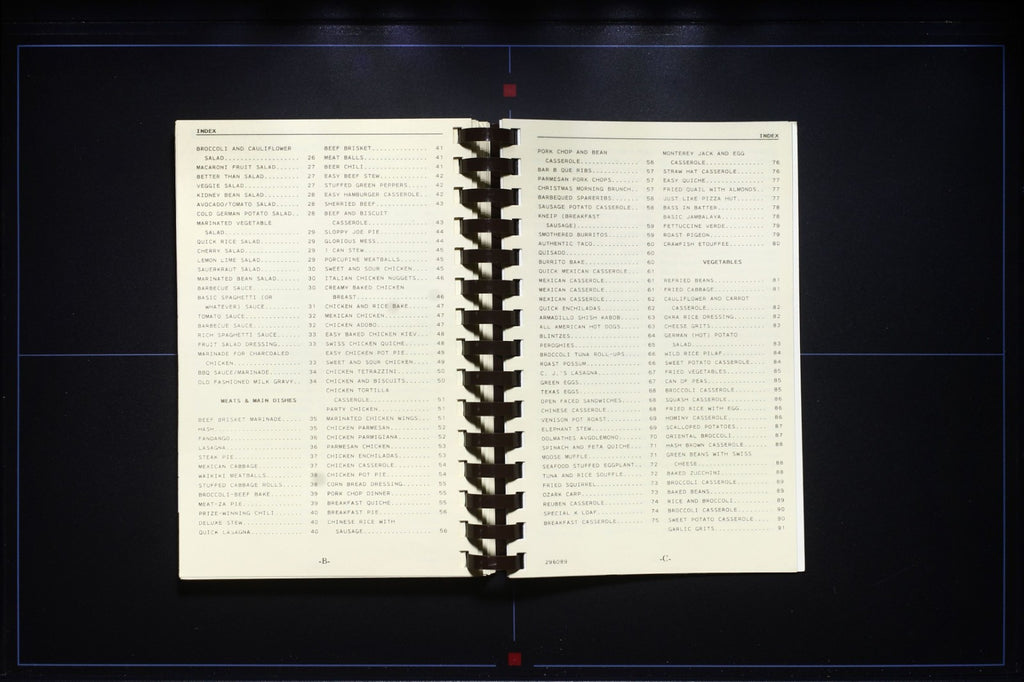 INDEX
BROCCOLI AND CAULIFLOWER
SALAD.................. 26
MACARONI FRUIT SALAD..... 27
BETTER THAN SALAD........ 27
VEGGIE SALAD............. 27
KIDNEY BEAN SALAD........ 28
AVOCADO/TOMATO SALAD..... 28
COLD GERMAN POTATO SALAD.. 28
MARINATED VEGETABLE
SALAD.................. 29
QUICK RICE SALAD......... 29
CHERRY SALAD............. 29
LEMON LIME SALAD......... 29
SAUERKRAUT SALAD......... 30
MARINATED BEAN SALAD..... 30
BARBECUE SAUCE........... 30
BASIC SPAGHETTI (OR
WHATEVER) SAUCE........ 31
TOMATO SAUCE............. 32
BARBECUE SAUCE........... 32
RICH SPAGHETTI SAUCE..... 33
FRUIT SALAD DRESSING..... 33
MARINADE FOR CHARCOALED
CHICKEN................ 33
BBQ SAUCE/MARINADE....... 34
OLD FASHIONED MILK GRAVY.. 34
MEATS & MAIN DISHES
BEEF BRISKET MARINADE.... 35
HASH..................... 35
FANDANGO................. 36
LASAGNA.................. 36
STEAK PIE................ 37
MEXICAN CABBAGE.......... 37
WAIKIKI MEATBALLS........ 38
STUFFED CABBAGE ROLLS.... 38
BROCCOLI-BEEF BAKE....... 39
MEAT-ZA PIE.............. 39
PRIZE-WINNING CHILI...... 40
DELUXE STEW.............. 40
QUICK LASAGNA............ 40
BEEF BRISKET............. 41
MEAT BALLS............... 41
BEER CHILI............... 41
EASY BEEF STEW........... 42
STUFFED GREEN PEPPERS.... 42
EASY HAMBURGER CASSEROLE. 42
SHERRIED BEEF............ 43
BEEF AND BISCUIT
CASSEROLE.............. 43
SLOPPY JOE PIE........... 44
GLORIOUS MESS............ 44
! CAN STEW............... 45
PORCUPINE MEATBALLS...... 45
SWEET AND SOUR CHICKEN... 45
ITALIAN CHICKEN NUGGETS.. 46
CREAMY BAKED CHICKEN
BREAST................. 46
CHICKEN AND RICE BAKE.... 47
MEXICAN CHICKEN.......... 47
CHICKEN ADOBO............ 47
EASY BAKED CHICKEN KIEV.. 48
SWISS CHICKEN QUICHE..... 48
EASY CHICKEN POT PIE..... 49
SWEET AND SOUR CHICKEN... 49
CHICKEN TETRAZZINI....... 50
CHICKEN AND BISCUITS..... 50
CHICKEN TORTILLA
CASSEROLE.............. 51
PARTY CHICKEN............ 51
MARINATED CHICKEN WINGS.. 51
CHICKEN PARMESAN......... 52
CHICKEN PARMIGIANA....... 52
PARMESAN CHICKEN......... 53
CHICKEN ENCHILADAS....... 53
CHICKEN CASSEROLE........ 54
CHICKEN POT PIE.......... 54
CORN BREAD DRESSING...... 55
PORK CHOP DINNER......... 55
BREAKFAST QUICHE......... 55
BREAKFAST PIE............ 56
CHINESE RICE WITH
SAUSAGE................ 56
-B-
INDEX
PORK CHOP AND BEAN
CASSEROLE.............. 56
BAR B QUE RIBS........... 57
PARMESAN PORK CHOPS...... 57
CHRISTMAS MORNING BRUNCH.. 57
BARBEQUED SPARERIBS...... 58
SAUSAGE POTATO CASSEROLE.. 58
KNEIP (BREAKFAST
SAUSAGE)............... 59
SMOTHERED BURRITOS....... 59
AUTHENTIC TACO........... 60
GUISADO.................. 60
BURRITO BAKE............. 60
QUICK MEXICAN CASSEROLE.. 61
MEXICAN CASSEROLE........ 61
MEXICAN CASSEROLE........ 61
MEXICAN CASSEROLE........ 62
QUICK ENCHILADAS......... 62
ARMADILLO SHISH KABOB.... 63
ALL AMERICAN HOT DOGS.... 63
BLINTZES................. 64
PEROGHIES................ 65
BROCCOLI TUNA ROLL-UPS... 66
ROAST POSSUM............. 66
C. J.'S LASAGNA.......... 67
GREEN EGGS............... 67
TEXAS EGGS............... 68
OPEN FACED SANDWICHES.... 68
CHINESE CASSEROLE........ 68
VENISON POT ROAST........ 69
ELEPHANT STEW............ 69
DOLMATHES AVGOLEMONO..... 70
SPINACH AND FETA QUICHE.. 71
MOOSE MUFFLE............. 71
SEAFOOD STUFFED EGGPLANT.. 72
TUNA AND RICE SOUFFLE.... 72
FRIED SQUIRREL........... 73
OZARK CARP............... 73
REUBEN CASSEROLE......... 74
SPECIAL K LOAF........... 74
BREAKFAST CASSEROLE...... 75
MONTEREY JACK AND EGG
CASSEROLE.............. 76
STRAW HAT CASSEROLE...... 76
EASY QUICHE.............. 77
FRIED QUAIL WITH ALMONDS.. 77
JUST LIKE PIZZA HUT...... 77
BASS IN BATTER........... 78
BASIC JAMBALAYA.......... 78
FETTUCCINE VERDE......... 79
ROAST PIGEON............. 79
CRAWFISH ETOUFFEE........ 80
VEGETABLES
REFRIED BEANS............ 81
FRIED CABBAGE............ 81
CAULIFLOWER AND CARROT
CASSEROLE.............. 82
OKRA RICE DRESSING....... 82
CHEESE GRITS............. 83
GERMAN (HOT) POTATO
SALAD.................. 83
WILD RICE PILAF.......... 84
SWEET POTATO CASSEROLE... 84
FRIED VEGETABLES......... 85
CAN OF PEAS.............. 85
BROCCOLI CASSEROLE....... 85
SQUASH CASSEROLE......... 86
FRIED RICE WITH EGG...... 86
HOMINY CASSEROLE......... 86
SCALLOPED POTATOES....... 87
ORIENTAL BROCCOLI........ 87
HASH BROWN CASSEROLE..... 88
GREEN BEANS WITH SWISS
CHEESE................. 88
BAKED ZUCCHINI........... 88
BROCCOLI CASSEROLE....... 89
BAKED BEANS.............. 89
RICE AND BROCCOLI........ 89
BROCCOLI CASSEROLE....... 90
SWEET POTATO CASSEROLE... 90
GARLIC GRITS............. 91
296089
-C-